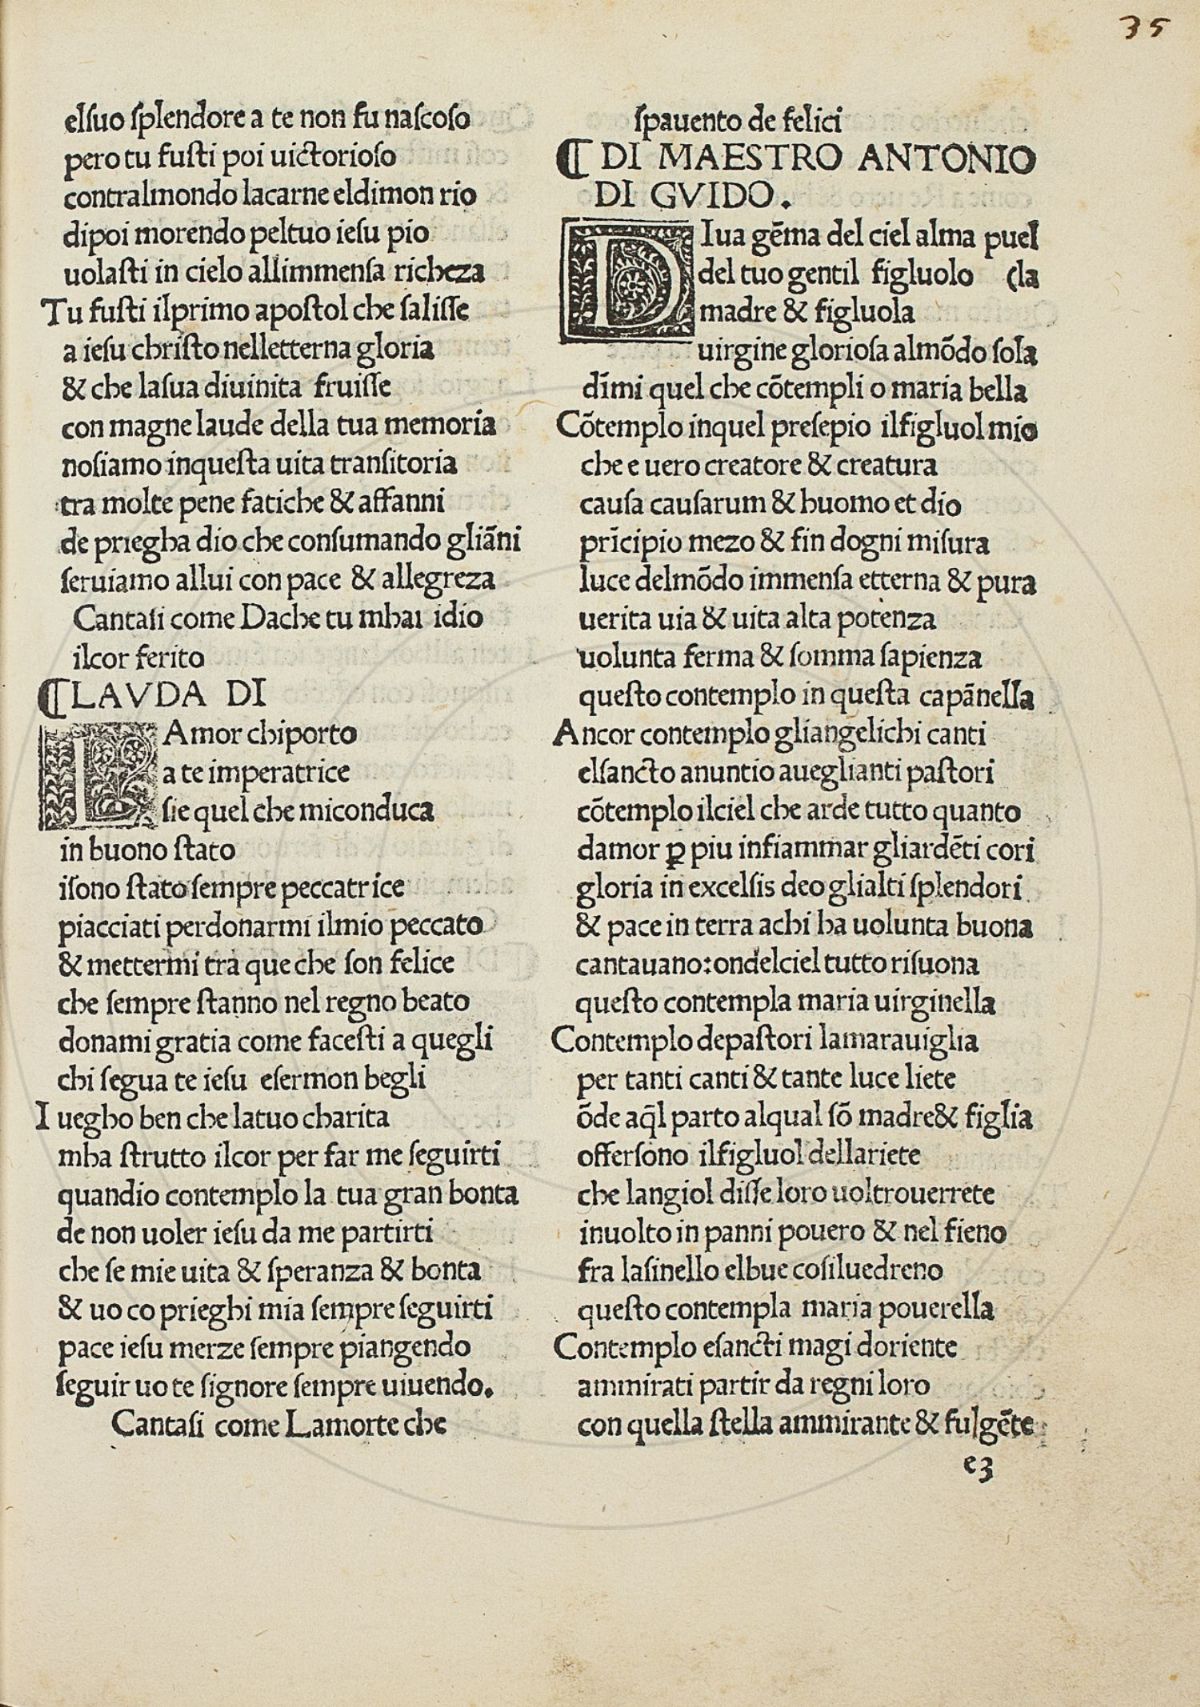 35
elsuo splendore a te non fu nascoso
pero tu fusti poi uictorioso
contralmondo lacarne eldimon rio
dipoi morendo peltuo iesu pio
uolasti in cielo allimmensa richeza
Tu fusti ilprimo apostol che salisse
a iesu christo nelletterna gloria
& che lasua diuinita fruisse
con magne laude della tua memoria
nosiamo inquesta uita transitoria
tra molte pene fatiche & affanni
de priegha dio che consumando gliāni
seruiamo allui con pace & allegreza
Cantasi come Dache tu mhai idio
ilcor ferito
¶LAVDA DI
LAmor chiporto
a te imperatrice
sie quel che miconduca
in buono stato
isono stato sempre peccatrice
piacciati perdonarmi ilmio peccato
& mettermi tra que che son felice
che sempre stanno nel regno beato
donami gratia come facesti a quegli
chi segua te iesu esermon begli
I uegho ben che latuo charita
mha strutto ilcor per far me seguirti
quandio contemplo la tua gran bonta
de non uoler iesu da me partirti
che se mie uita & speranza & bonta
& uo co prieghi mia sempre seguirti
pace iesu merze sempre piangendo
seguir uo te signore sempre uiuendo.
Cantasi come Lamorte che
spauento de felici
¶ DI MAESTRO ANTONIO
DI GVIDO.
DIua gēma del ciel alma puel
del tuo gentil figluolo (la
madre & figluola
uirgine gloriosa almōdo sola
dīmi quel che cōtempli o maria bella
Cōtemplo inquel presepio ilfigluol mio
che e uero creatore & creatura
causa causarum & huomo et dio
prīcipio mezo & fin dogni misura
luce delmōdo immensa etterna & pura
uerita uia & uita alta potenza
uolunta ferma & somma sapienza
questo contemplo in questa capānella
Ancor contemplo gliangelichi canti
elsancto anuntio aueglianti pastori
cōtemplo ilciel che arde tutto quanto
damor ꝑ piu infiammar gliardēti cori
gloria in excelsis deo glialti splendori
& pace in terra achi ha uolunta buona
cantauano:ondelciel tutto risuona
questo contempla maria uirginella
Contemplo depastori lamarauiglia
per tanti canti & tante luce liete
ōde aq̄l parto alqual sō madre& figlia
offersono ilfigluol dellariete
che langiol disse loro uoltrouerrete
inuolto in panni pouero & nel fieno
fra lasinello elbue cosiluedreno
questo contempla maria pouerella
Contemplo esancti magi doriente
ammirati partir da regni loro
con quella stella ammirante & fulgēte
e3